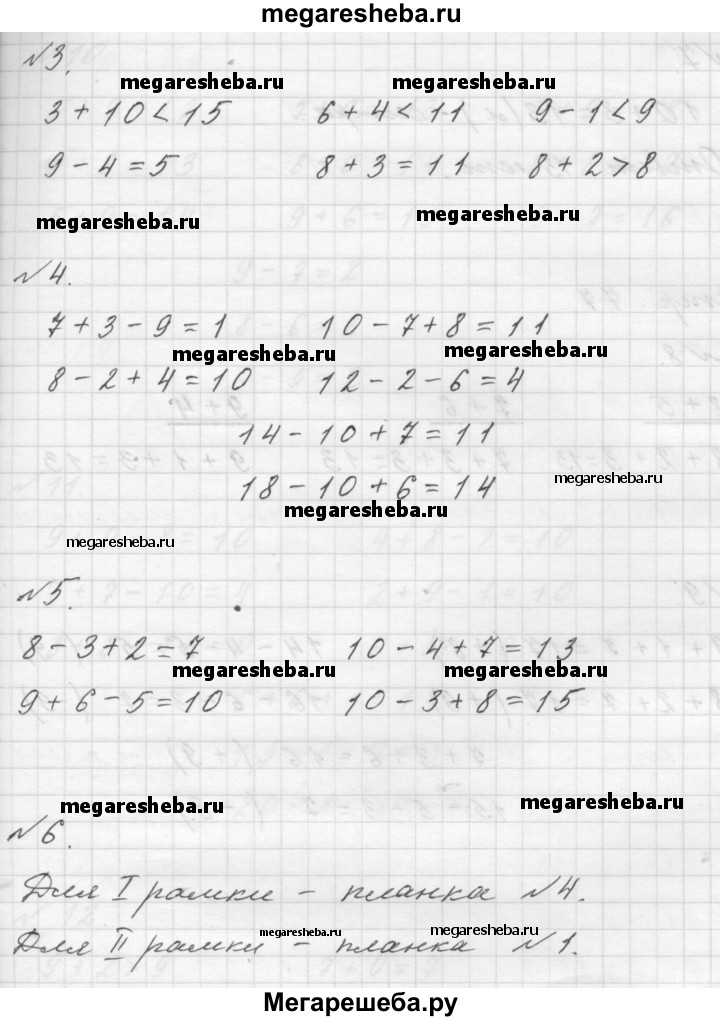 megaresheba.ru
№3.
megaresheba.ru megaresheba.ru
3 + 10 < 15 6 + 4 < 11 9 - 1 < 9
9 - 4 = 5 8 + 3 = 11 8 + 2 > 8
megaresheba.ru megaresheba.ru
№4.
7 + 3 - 9 = 1 10 - 7 + 8 = 11
megaresheba.ru megaresheba.ru
8 - 2 + 4 = 10 12 - 2 - 6 = 4
14 - 10 + 7 = 11
megaresheba.ru
18 - 10 + 6 = 14
megaresheba.ru
megaresheba.ru
№5.
8 - 3 + 2 = 7 10 - 4 + 7 = 13
megaresheba.ru megaresheba.ru
9 + 6 - 5 = 10 10 - 3 + 8 = 15
megaresheba.ru megaresheba.ru
№6.
Для I рамки - планка №4.
megaresheba.ru megaresheba.ru
Для II рамки - планка №1.
Мегарешеба.ру